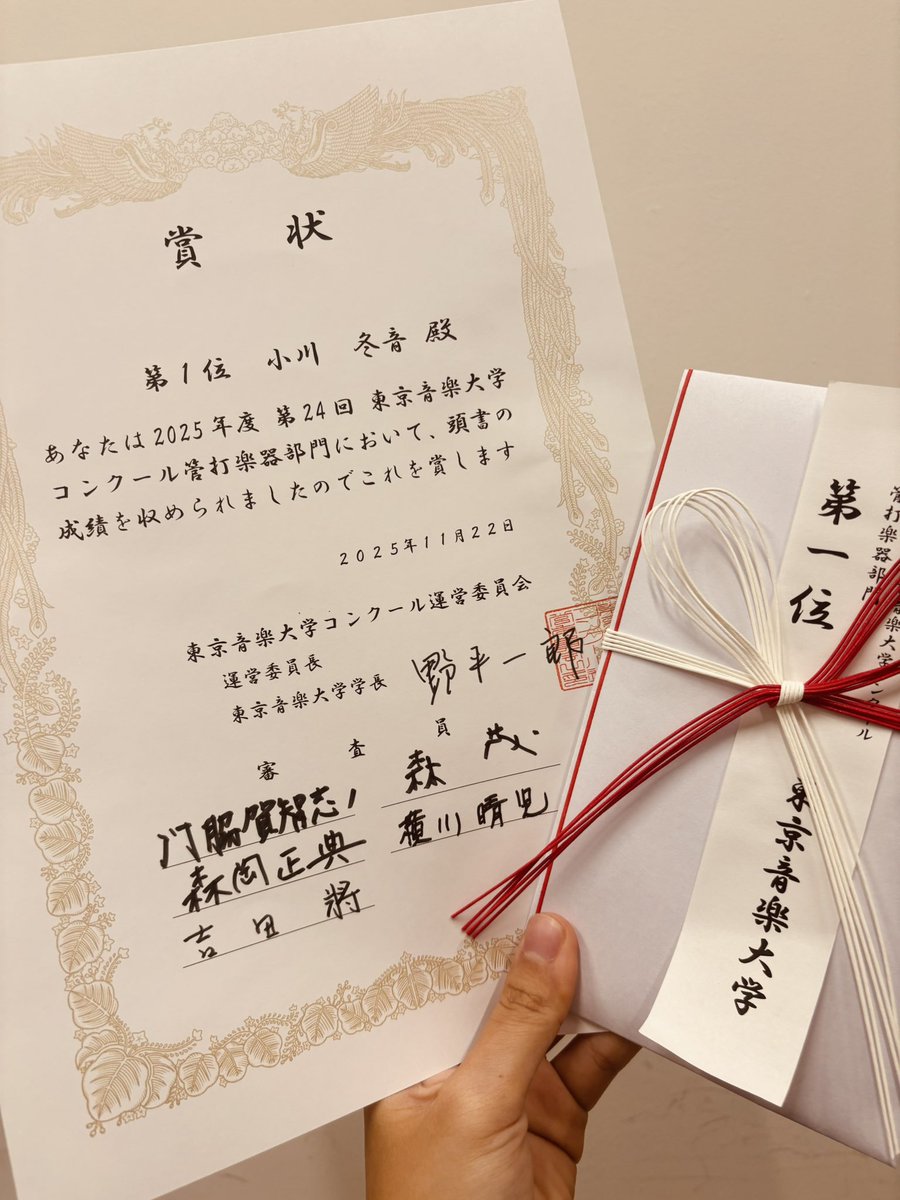 賞状
第1位 小川 冬音 殿
あなたは2025年度 第24回 東京音楽大学
コンクール管打楽器部門において、頭書の
成績を収められましたのでこれを賞します
2025年11月22日
東京音楽大学コンクール運営委員会
運営委員長
東京音楽大学学長 野平一郎
審査員
門脇賀智志 森 茂
森岡正典 横川晴児
吉田 將
管打楽器部門
音楽大学コンクール
第一位
東京音楽大学